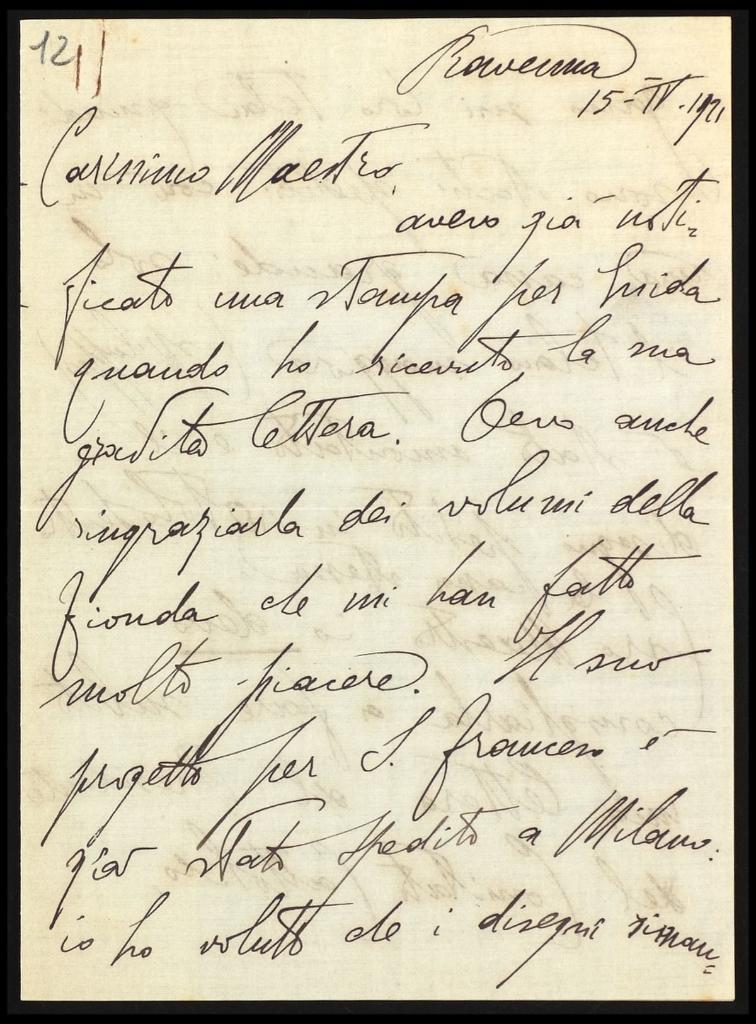 12
Ravenna
15-IV-1921
Carissimo Maestro,
avevo già noti=
ficato una stampa per Guida
quando ho ricevuto la sua
gradita lettera. Devo anche
ringraziarla dei volumi della
fionda che mi han fatto
molto piacere. Il suo
progetto per S. Francesco è
già stato spedito a Milano:
io ho voluto che i disegni riman=